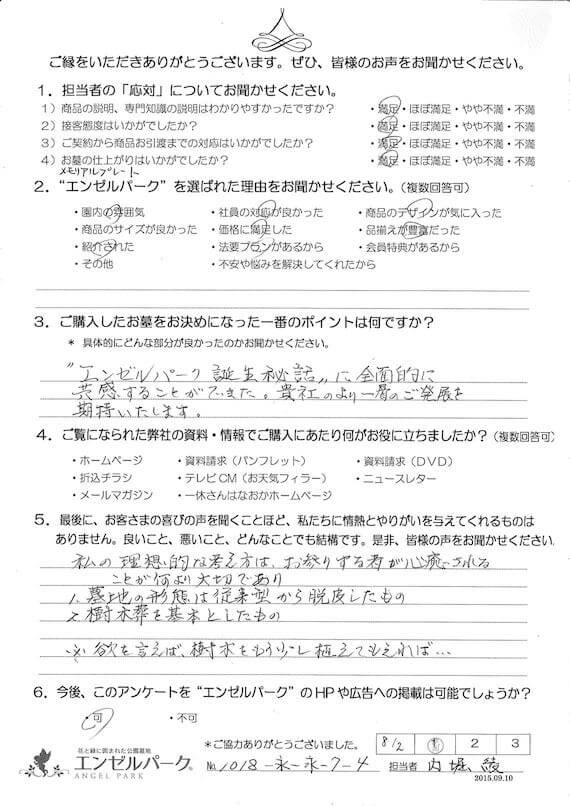 ご縁をいただきありがとうございます。ぜひ、皆様のお声をお聞かせください。
1．担当者の「応対」についてお聞かせください。
1）商品の説明、専門知識の説明はわかりやすかったですか？ ・満足・ほぼ満足・やや不満・不満
2）接客態度はいかがでしたか？ ・満足・ほぼ満足・やや不満・不満
3）ご契約から商品お引渡までの対応はいかがでしたか？ ・満足・ほぼ満足・やや不満・不満
4）お墓の仕上がりはいかがでしたか？ ・満足・ほぼ満足・やや不満・不満
メモリアルプレート
2．“エンゼルパーク”を選ばれた理由をお聞かせください。（複数回答可）
・園内の雰囲気 ・社員の対応が良かった ・商品のデザインが気に入った
・商品のサイズが良かった ・価格に満足した ・品揃えが豊富だった
・紹介された ・法要プランがあるから ・会員特典があるから
・その他 ・不安や悩みを解決してくれたから
3．ご購入したお墓をお決めになった一番のポイントは何ですか？
* 具体的にどんな部分が良かったのかお聞かせください。
〝エンゼルパーク誕生秘話〟に全面的に
共感することができた。貴社のより一層のご発展を
期待いたします。
4．ご覧になられた弊社の資料・情報でご購入にあたり何がお役に立ちましたか？（複数回答可）
・ホームページ ・資料請求（パンフレット） ・資料請求（DVD）
・折込チラシ ・テレビCM（お天気フィラー） ・ニュースレター
・メールマガジン ・一休さんはなおかホームページ
5．最後に、お客さまの喜びの声を聞くことほど、私たちに情熱とやりがいを与えてくれるものは
ありません。良いこと、悪いこと、どんなことでも結構です。是非、皆様の声をお聞かせください。
私の理想的な考え方は、お参りする者が心癒される
ことが何より大切であり
1、墓地の形態は従来型から脱皮したもの
2、樹木葬を基本としたもの
※欲を言えば、樹木をもう少し植えてもらえれば…
6．今後、このアンケートを“エンゼルパーク”のHPや広告への掲載は可能でしょうか？
・可 ・不可
*ご協力ありがとうございました。
8/2 1 2 3
花と緑に囲まれた公園墓地
エンゼルパーク®
ANGEL PARK
No. 1018-永-永-7-4 担当者 内堀 綾
2015.09.10